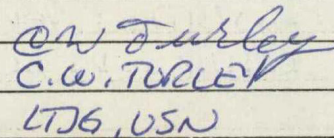 C W Turley
C.W. TURLEY
LTJG, USN